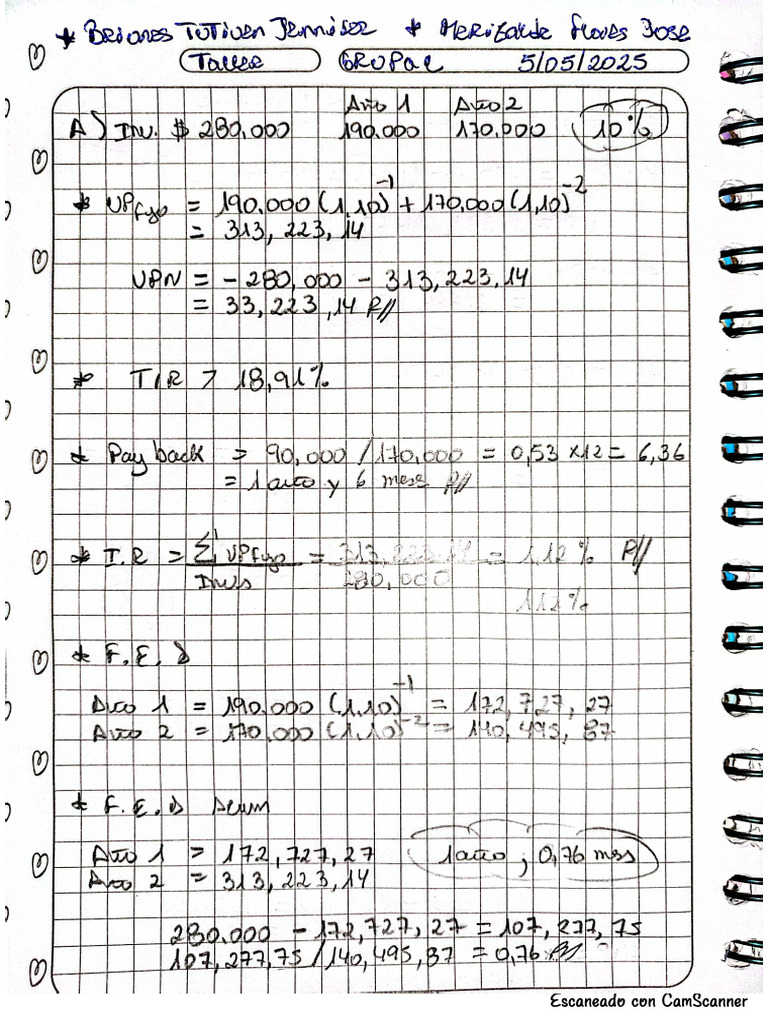 * Briones Tutiven Jennifer * Merizalde Flores Jose
Taller Grupal 5/05/2025
Año 1 Año 2
A) Inv. $ 280.000 190.000 170.000 10%
* VPfyo = 190.000 (1,10)⁻¹ + 170.000 (1,10)⁻²
= 313,223,14
VPN = - 280,000 - 313,223,14
= 33,223,14 R//
* TIR > 18,91%
* Pay back = 90,000 / 170,000 = 0,53 x12 = 6,36
= 1 año y 6 mess R//
* I.R = Σ VPfyo = 313,223,14 = 1,12 % R//
Invs 280,000
112%
* F.E.D
Año 1 = 190.000 (1,10)⁻¹ = 172,727,27
Año 2 = 170.000 (1,10)⁻² = 140,495,87
* F.E.D Acum
Año 1 = 172,727,27 1año ; 0,76 mss
Año 2 = 313,223,14
280.000 - 172,727,27 = 107,277,75
107,277,75 / 140,495,87 = 0,76 R//
Escaneado con CamScanner